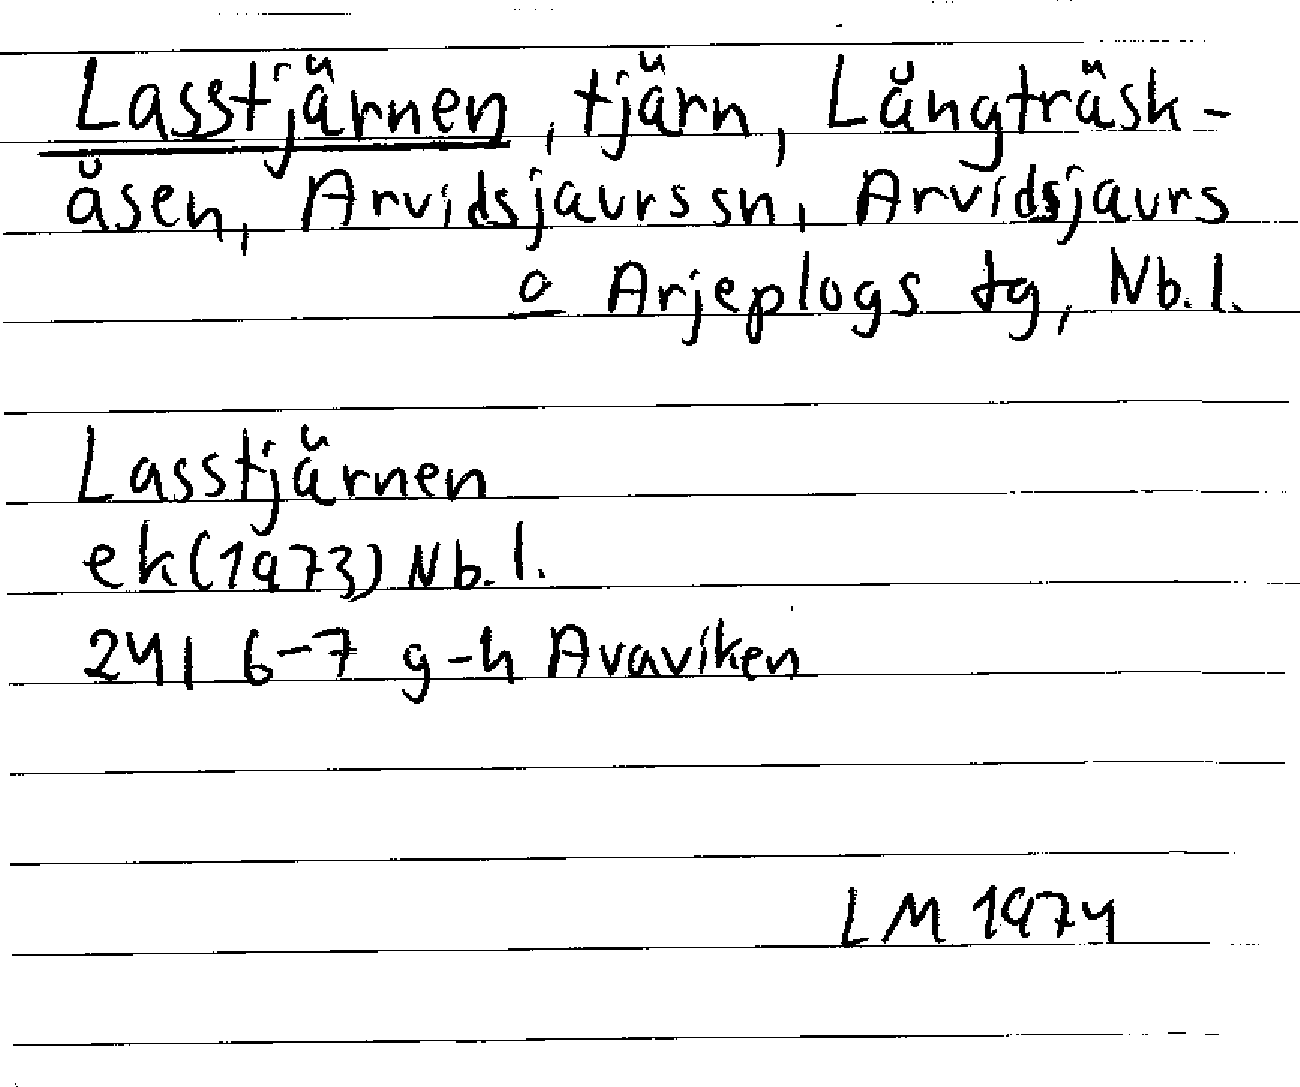 Lasstjärnen, tjärn, Långträsk-
åsen, Arvidsjaurs sn, Arvidsjaurs
o Arjeplogs tg, Nb.l.
Lasstjärnen
ek(1973) Nb.l.
24I 6-7 g-h Avaviken
LM 1974